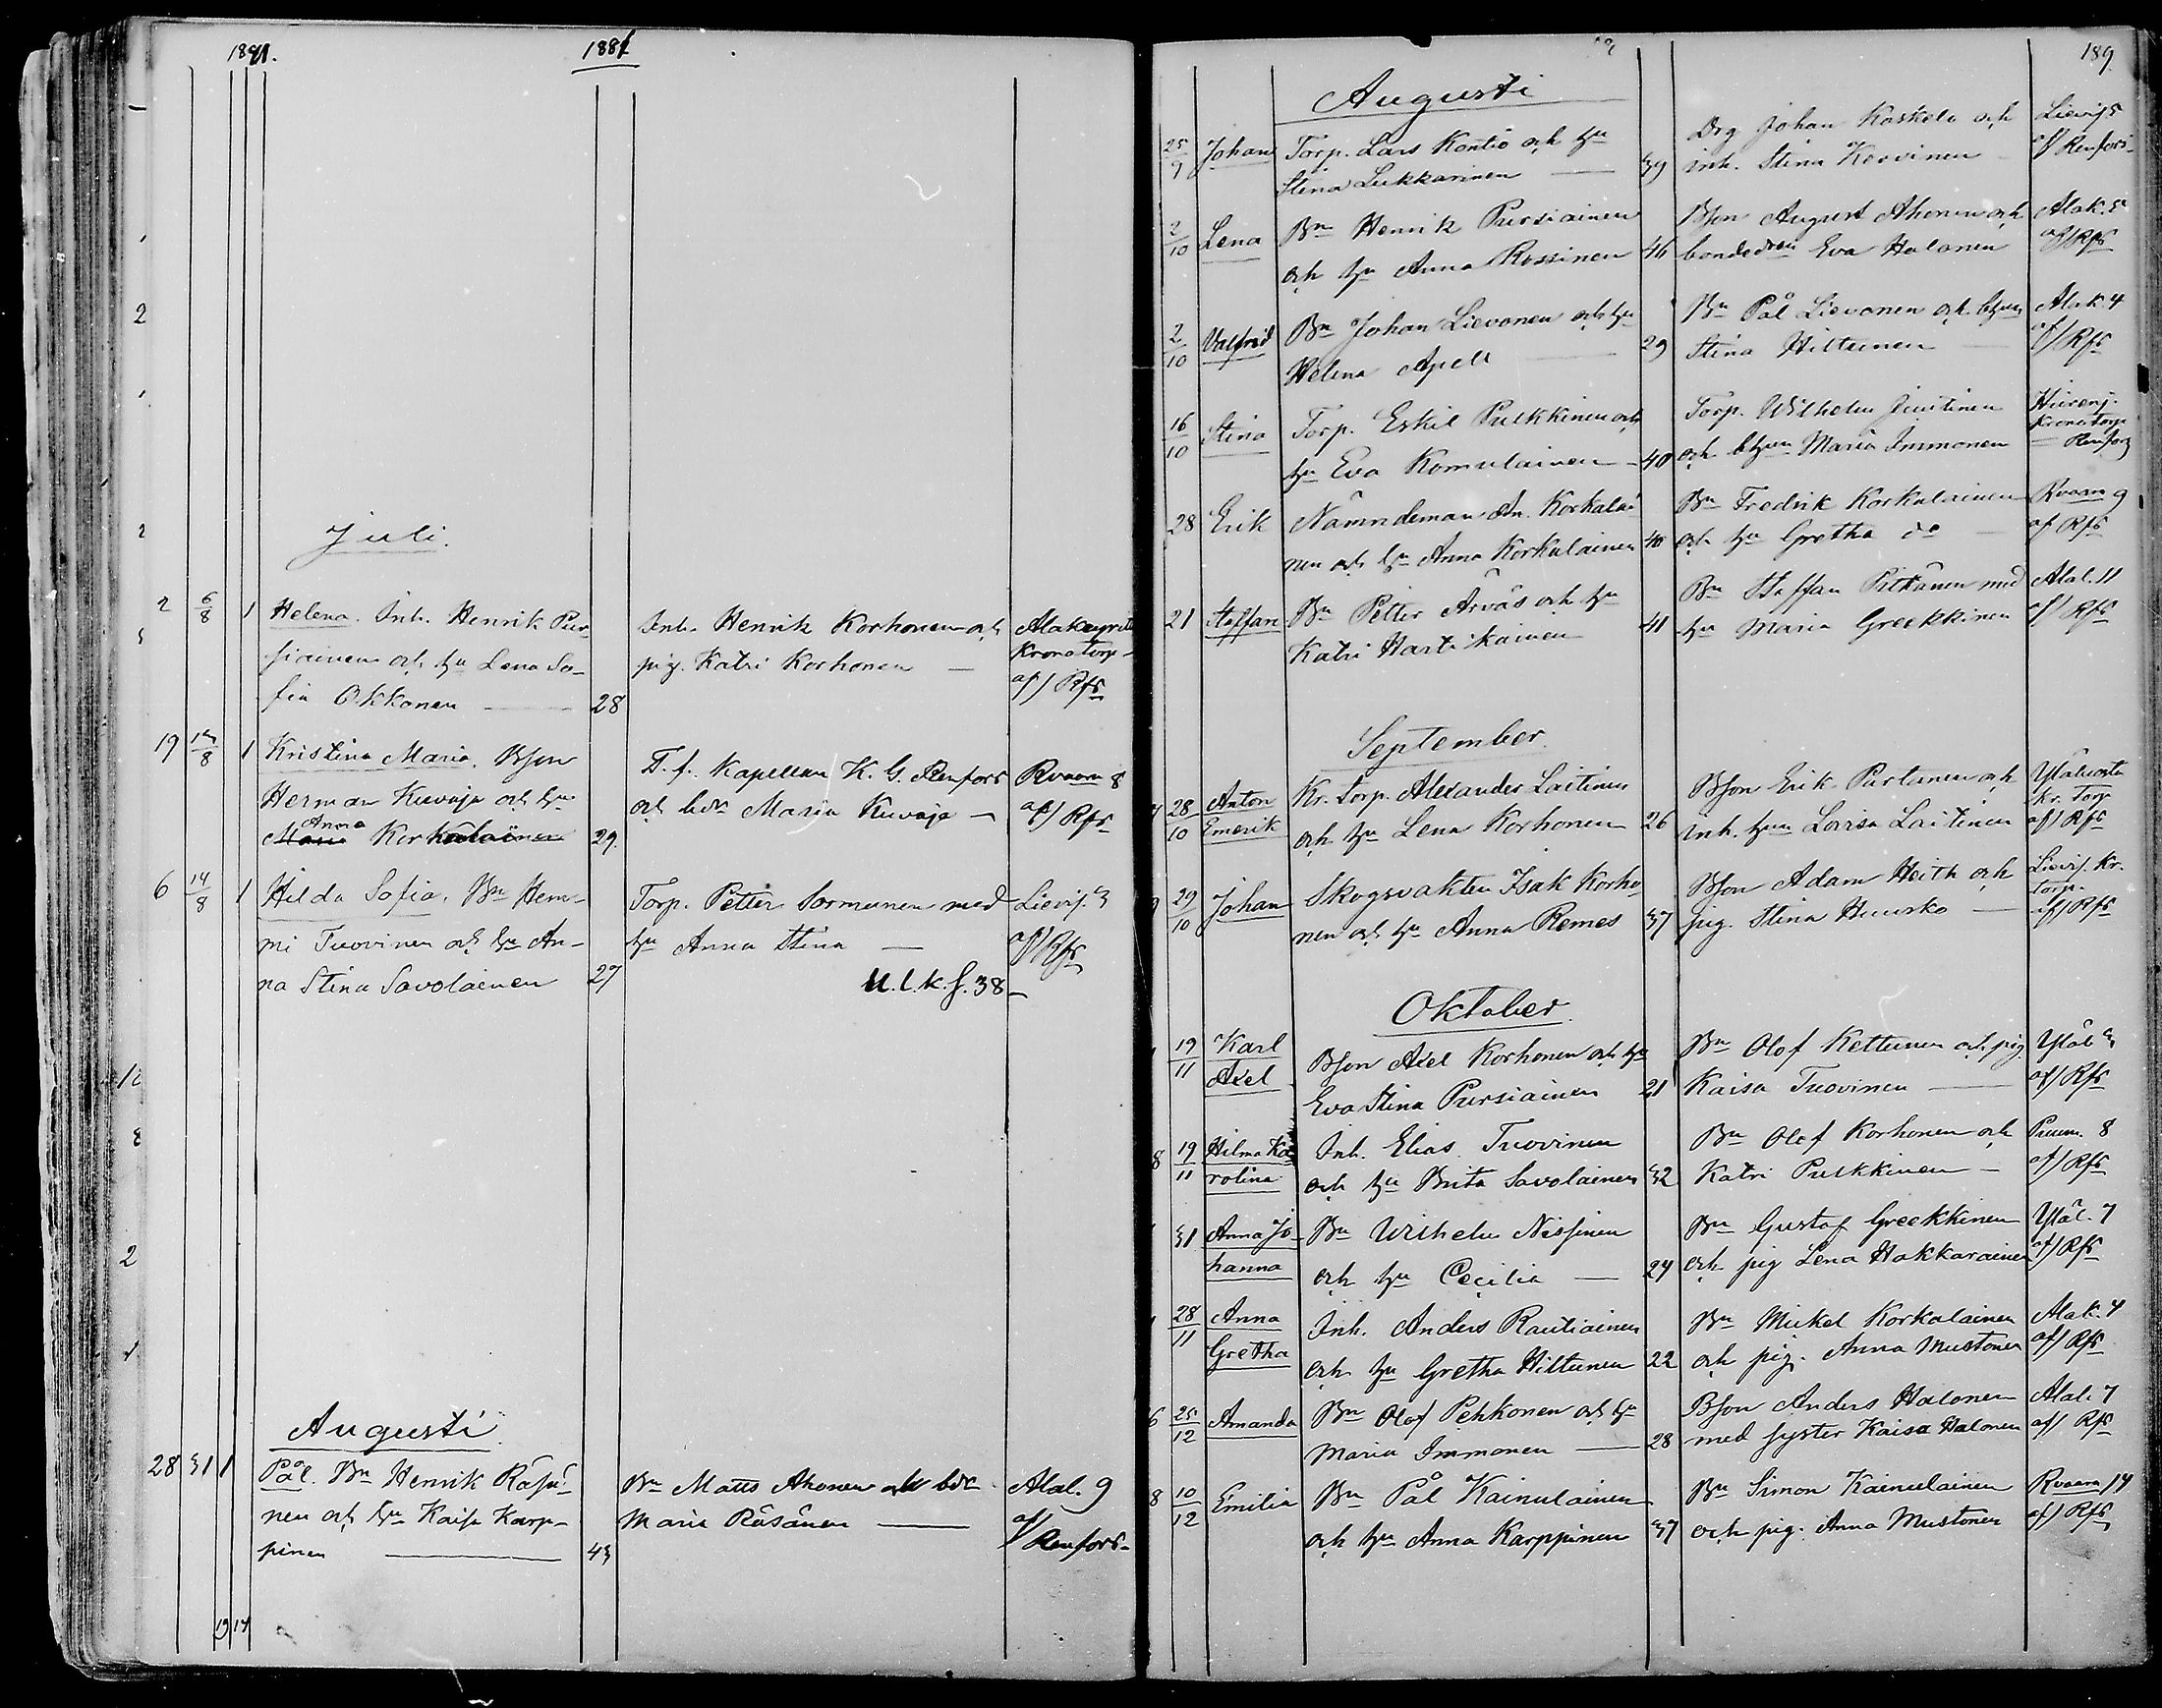 1881.
1881
Juli.
2 6/8 1 Helena. Inh. Henrik Pur-
siainen och hu Lena So-
fia Okkonen — 28
Inh. Henrik Korhonen och
pig. Katri Korhonen —
Kronotorp
af/ Rfs
19 /8 1 Kristina Maria. Bson
Herman Kuvaja och hu
Anna
Maria Korkalainen 29.
T. f. Kapellan K. G. Renfors
och bdr Maria Kuvaja —
Rvaara 8
af/ Rfs
6 14/8 1 Hilda Sofia. Bn Hem-
mi Tuovinen och hu An-
na Stina Savolainen 27
Torp. Petter Sormunen med
hu Anna Stina —
U.l.k.f. 38 —
Lievij. 3
af/ Rfs
Augusti
28 31 1 Pål. Bn Henrik Räsä-
nen och hu Kaisa Karp-
pinen — 43
Bn Matts Ahonen och bdr
Maria Räsänen —
Alal. 9
af/
Renfors.
19 17
189.
Augusti
25/9 Johan Torp. Lars Kontio och hu
Stina Lukkarinen — 39
Drg Johan Koskelo och
inh. Stina Kovinen —
Lievij 5
af Renfors
2/10 Lena Bn Henrik Pursiainen
och hu Anna Rossinen 46
Bson August Ahonen och
bondedren Eva Halonen
Alak. 5
af/ Rfs
2/10 Valfrid Bn Johan Lievonen och hu
Helena Apell — 29
Bn Pål Lievonen och bhun
Stina Hiltunen —
Alak 4
af/ Rfs
16/10 Stina Torp. Eskil Pulkkinen och
hu Eva Komulainen — 40
Torp. Wilhelm Juutinen
och bhun Maria Immonen
Hiirenj.
Kronotorp
Renfors
28 Erik Nämndeman An. Korkalai
nen och hu Anna Korkalainen 40
Bn Fredrik Korkalainen
och hu Gretha do —
Rvaara 9
af Rfs
21 Staffan Bn Petter Ärväs och hu
Katri Hartikainen 41
Bn Staffan Pitkänen med
hu Maria Greekkinen
Alal. 11
af/ Rfs
September.
28/10 Anton
Emerik
Kr. Torp. Alexander Laitinen
och hu Lena Korhonen 26
Bson Erik Partanen och
inh. hun Lovisa Laitinen
Kr. Torp
af/ Rfs
29/10 Johan Skogsvakten Isak Korho
nen och hu Anna Remes 37
Bson Adam Heith och
pig. Stina Huusko —
Lievij. Kr.
Torp.
af/ Rfs
Oktober.
19/11 Karl
Axel
Bson Axel Korhonen och hu
Eva Stina Pursiainen 21
Bn Olof Kettunen och pig.
Kaisa Tuovinen —
Yläl 3
af/ Rfs
8 19/11 Hilma Ka-
rolina
Inh. Elias Tuovinen
och hu Brita Savolainen 32
Bn Olof Korhonen och
Katri Pulkkinen —
Puum. 8
af/ Rfs
31 Anna Jo-
hanna
Bn Wilhelm Nissinen
och hu Cecilia — 24
Bn Gustaf Greekkinen
och pig Lena Hakkarainen
Yläl. 7
af/ Rfs
28/11 Anna
Gretha
Inh. Anders Rautiainen
och hu Gretha Hiltunen 22
Bn Mickel Korkalainen
och pig. Anna Mustonen
Alak. 4
af/ Rfs
6 25/12 Amanda Bn Olof Pehkonen och hu
Maria Immonen — 28
Bson Anders Halonen
med syster Kaisa Halonen
Alal. 7
af/ Rfs
8 10/12 Emilia Bn Pål Kainulainen
och hu Anna Karppinen 37
Bn Simon Kainulainen
och pig. Anna Mustonen
Rvaara 14
af/ Rfs